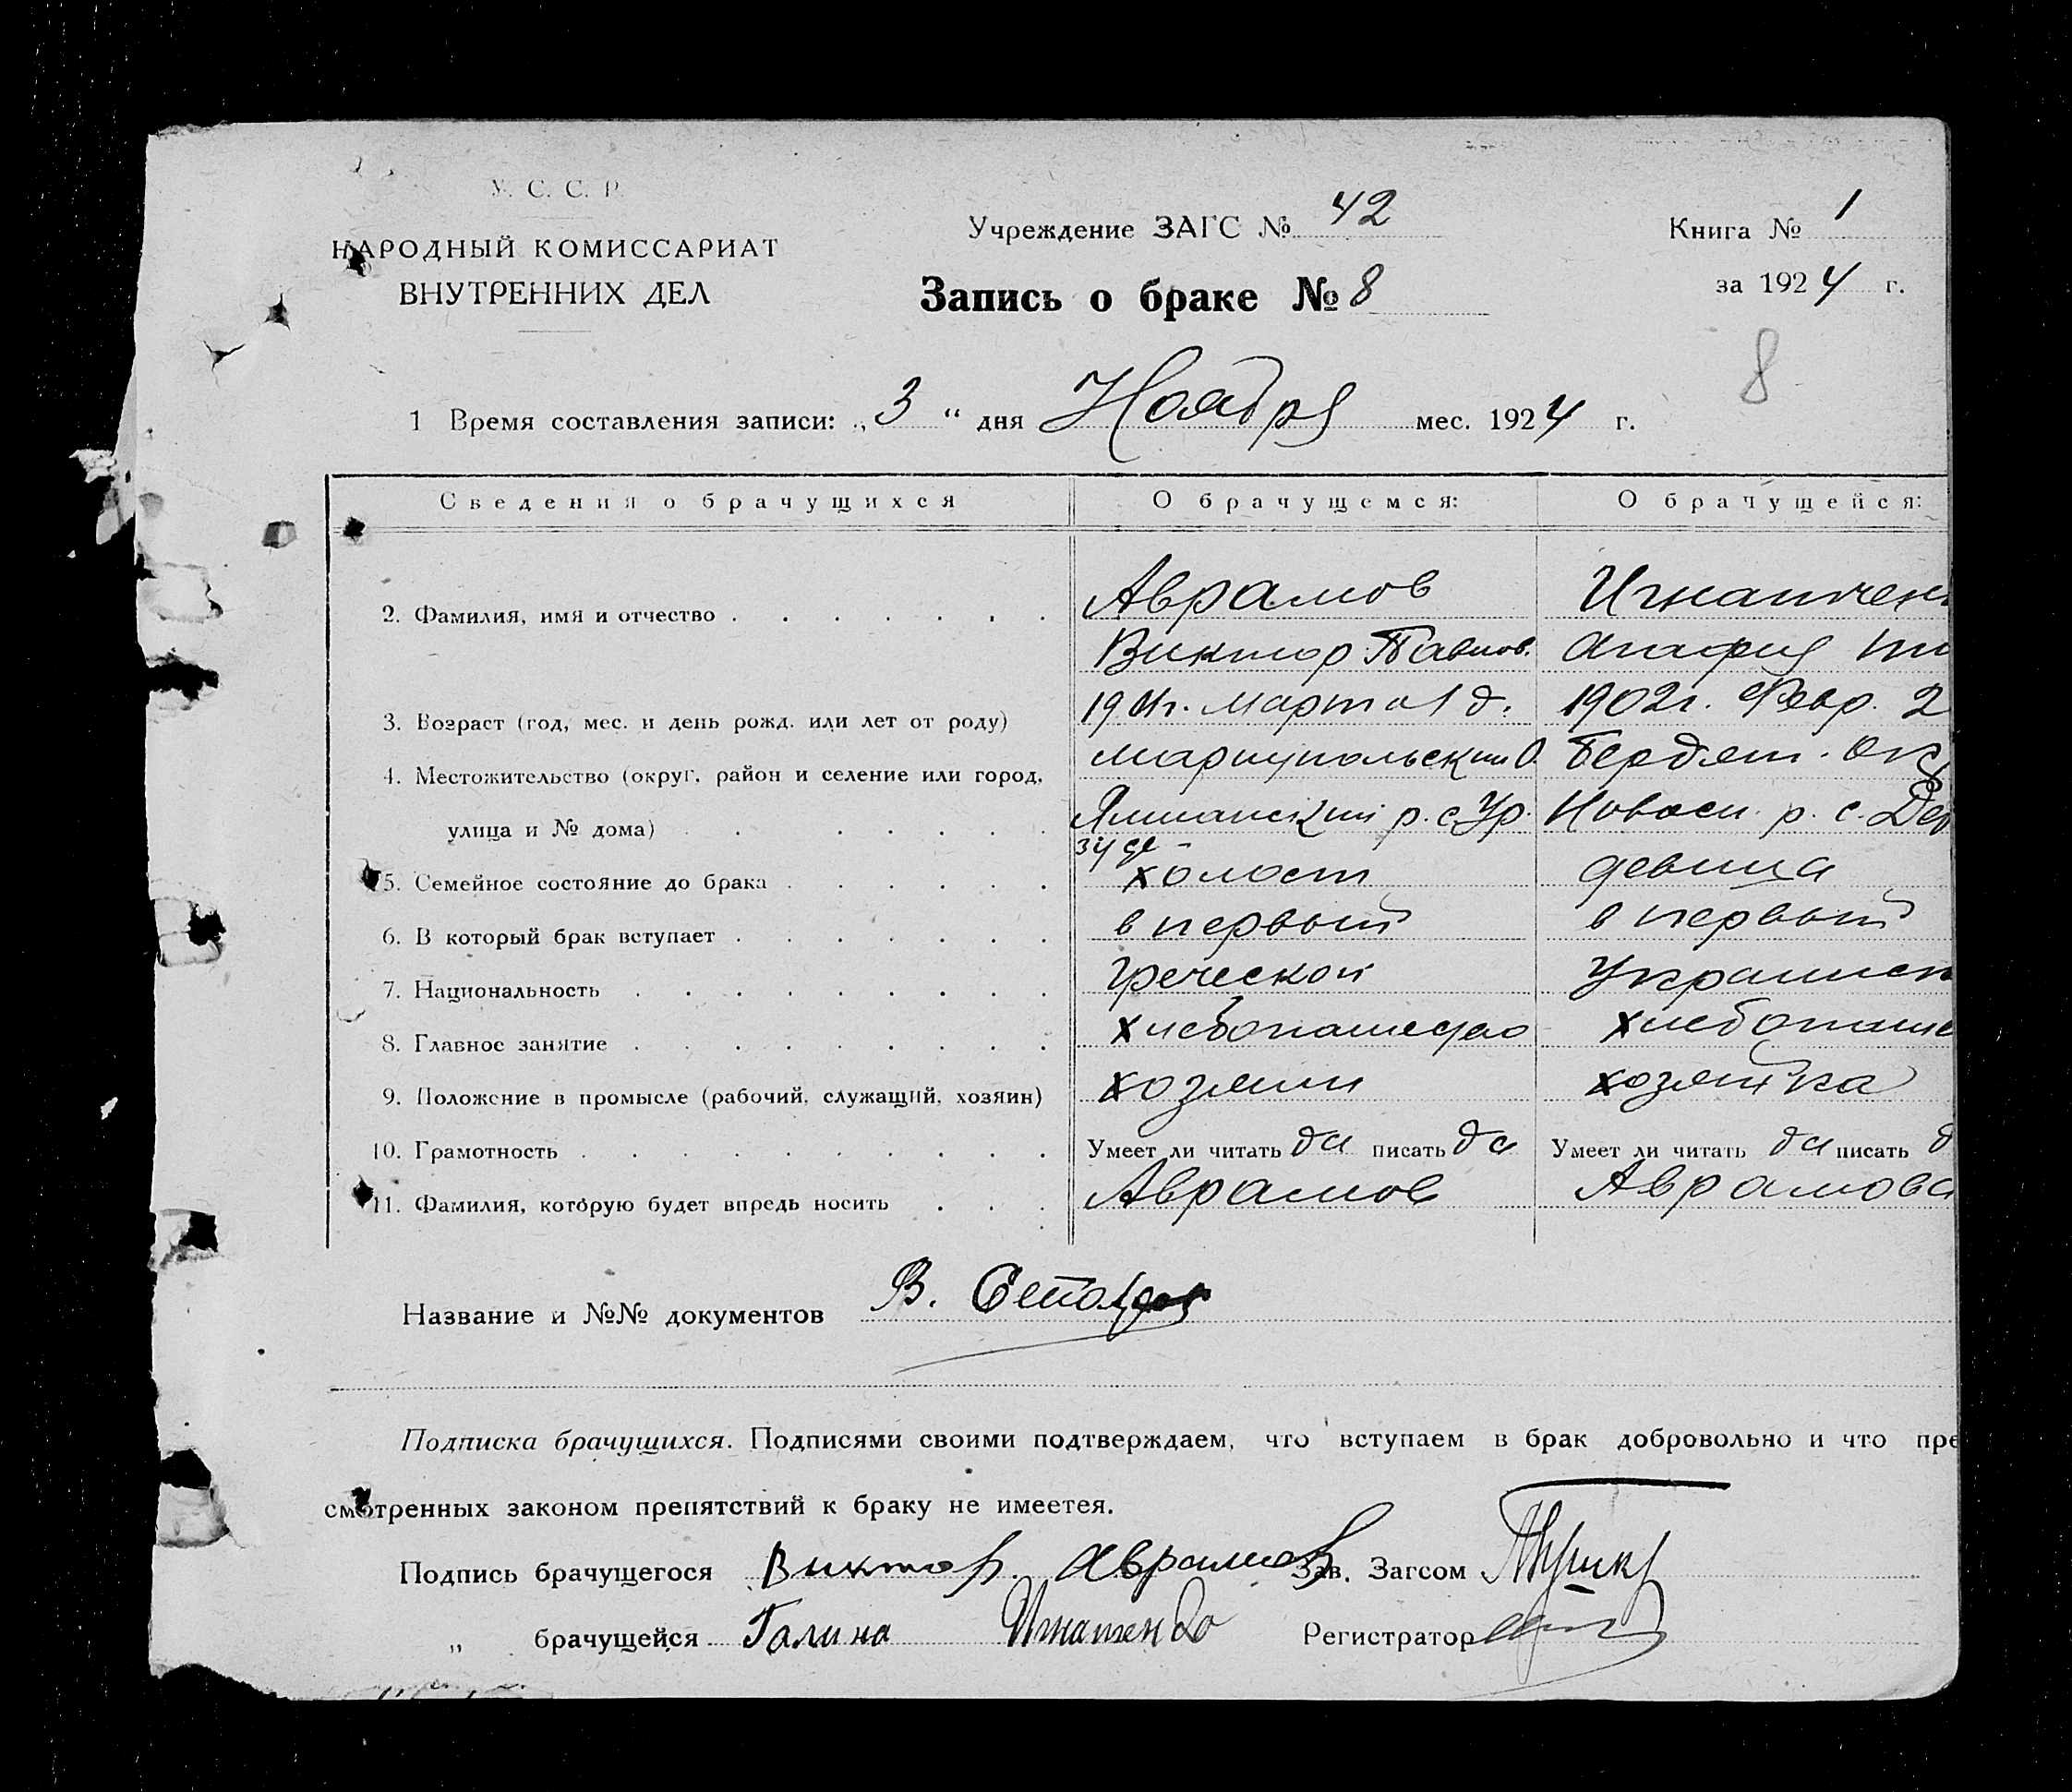 У. С. С. Р.
НАРОДНЫЙ КОМИССАРИАТ
ВНУТРЕННИХ ДЕЛ
Учреждение ЗАГС № 42
Книга № 1
Запись о браке № 8
за 1924 г.
8
1 Время составления записи: „3“ дня Ноября мес. 1924 г.
Сведения о брачущихся О брачущемся: О брачущейся:
2. Фамилия, имя и отчество Аврамов Игнатчен
Виктор Павлов. Агафия
3. Возраст (год, мес. и день рожд. или лет от роду) 1901г. Марта 1 д. 1902г. Февр. 2
4. Местожительство (округ, район и селение или город, Мариупольский О. Бердян. Ок
улица и № дома) р. с. Ур Новосп. р. с.
зуф
5. Семейное состояние до брака холост девица
6. В который брак вступает в первый в первый
7. Национальность Греческой Украинск
8. Главное занятие хлебопашество хлебопаше
9. Положение в промысле (рабочий, служащий, хозяин) хозяин хозяйка
10. Грамотность Умеет ли читать да писать да Умеет ли читать да писать д
11. Фамилия, которую будет впредь носить Аврамов Аврамова
Название и №№ документов В.
Подписка брачущихся. Подписями своими подтверждаем, что вступаем в брак добровольно и что пре
смотренных законом препятствий к браку не имеетея.
Подпись брачущегося Виктор Аврамов Зав. Загсом
„ брачущейся Галина Игнатенко Регистратор